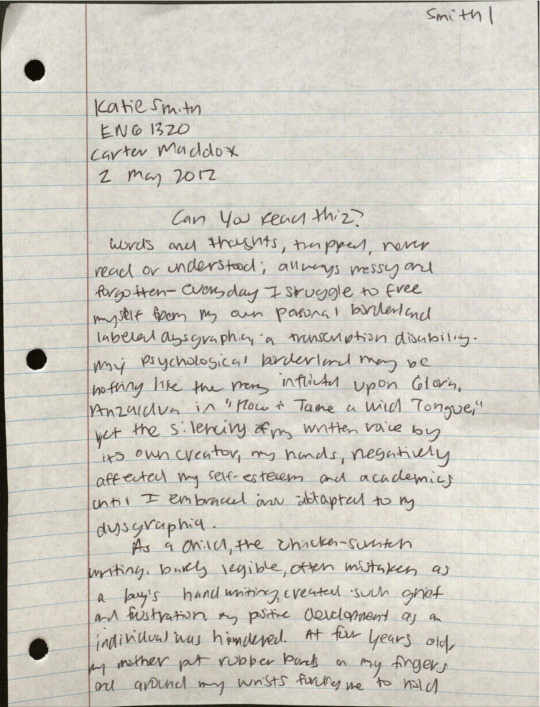 Smith 1
Katie Smith
ENG 1320
Carter Maddox
2 May 2012
Can You Read This?
Words and thoughts, trapped, never
read or understood; allways messy and
forgotten- everyday I struggle to free
myself from my own personal borderland
labeled dysgraphia: a transcription disability.
My psychological borderland may be
nothing like the many inflicted upon Gloria,
Anzaldua in "How to Tame a Wild Tongue,"
yet the silencing of my written voice by
its own creator, my hands, negatively
affected my self-esteem and academics
until I embraced and adapted to my
dysgraphia.
As a child, the chicken-scratch
writing, barely legible, often mistaken as
a boy's handwriting, created such grief
and frustration, my positive development as an
individual was hindered. At four years old,
my mother put rubber bands on my fingers
and around my wrists forcing me to hold